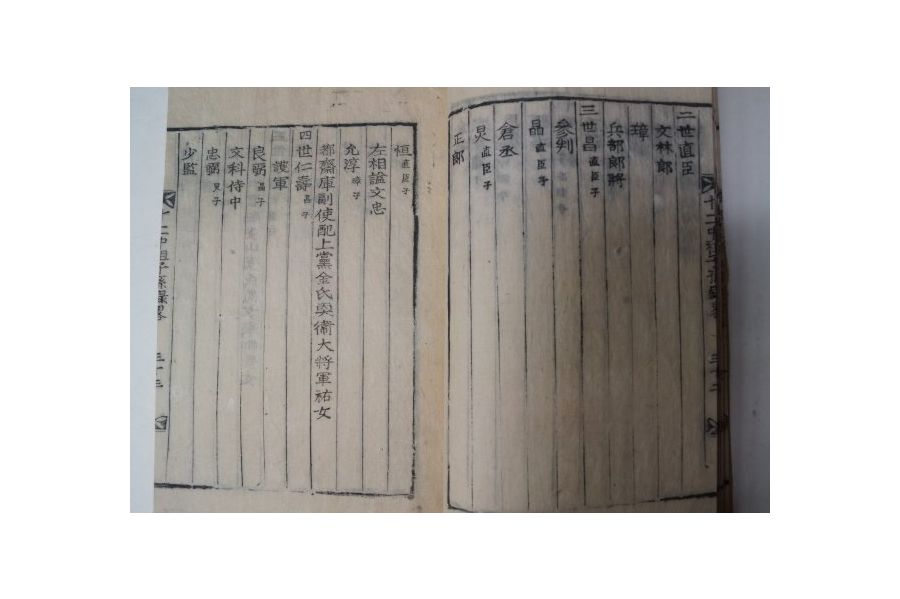 二世直臣
文林郎
璋
兵部郎將
三世昌 直臣子
參判
晶 直臣子
倉丞
炅 直臣子
正郎
恒 直臣子
左相謚文忠
允淳 璋子
都齋庫副使配上黨金氏興衛大將軍祐女
四世仁壽 昌子
護軍
良弼 晶子
文科侍中
忠弼 炅子
少監
十二中祖子孫錄畧 三十二
十二中祖子孫錄畧 三十三